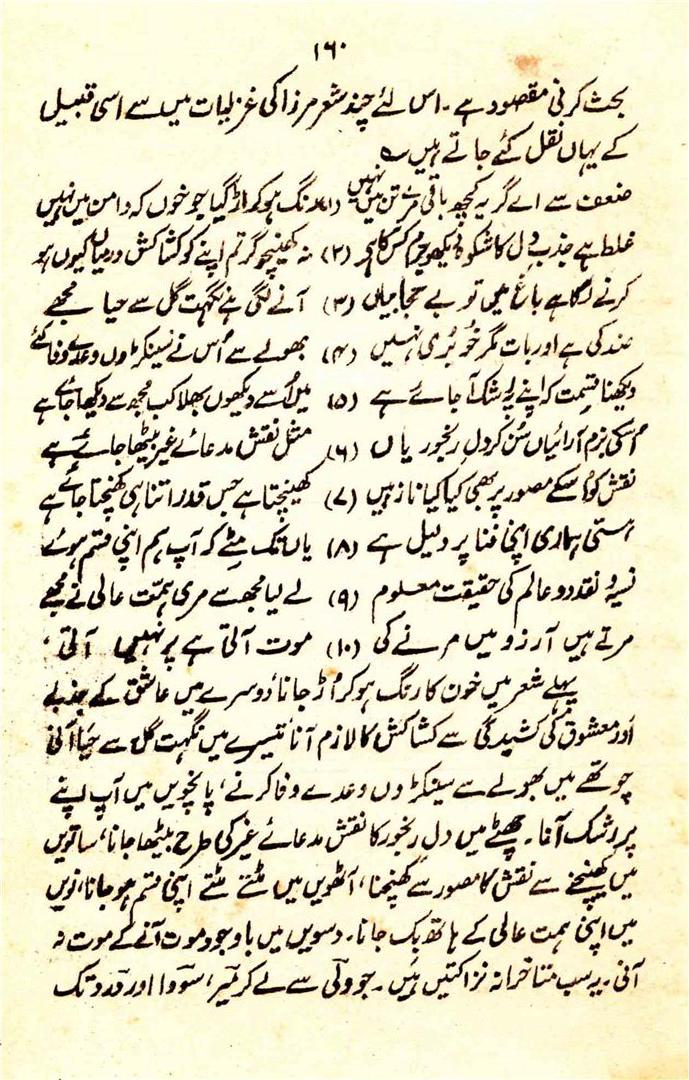 ۱۶۰
بحث کرنی مقصود ہے۔ اس لئے چند شعر مرزا کی غزلیات میں سے اسی قبیل
کے یہاں نقل کئے جاتے ہیں ؎
ضعف سے اے گریہ کچھ باقی مرے تن میں نہیں (۱) رنگ ہو کر اڑ گیا جو خوں کہ دامن میں نہیں
غلط ہے جذبِ دل کا شکوہ دیکھو جرم کس کا ہے (۲) نہ کھینچو گر تم اپنے کو کشاکش درمیاں کیوں ہو
کرنے لگا ہے باغ میں تو بے حجابیاں (۳) آنے لگی ہے نکہت گل سے حیا مجھے
ضد کی ہے اور بات مگر خو بُری نہیں (۴) بھولے سے اُس نے سینکڑوں وعدے وفا کئے
دیکھنا قسمت کہ اپنے پہ رشک آ جائے ہے (۵) میں اُسے دیکھوں بھلا کب مجھ سے دیکھا جائے ہے
اُسکی بزم آرائیاں سُن کر دلِ رنجور یاں (۶) مثل نقش مدعائے غیر بیٹھا جائے ہے
نقش کو اُسکے مصور پر بھی کیا کیا ناز ہیں (۷) کھینچتا ہے جس قدر اتنا ہی کھنچتا جائے ہے
ہستی ہماری اپنی فنا پر دلیل ہے (۸) یاں تک مٹے کہ آپ ہم اپنی قسم ہوئے
نسیہ و نقد دو عالم کی حقیقت معلوم (۹) لے لیا مجھ سے مری ہمت عالی نے مجھے
مرتے ہیں آرزو میں مرنے کی (۱۰) موت آتی ہے پر نہیں آتی،
پہلے شعر میں خون کا رنگ ہو کر اُڑ جانا، دوسرے میں عاشق کے جذبے
اور معشوق کی کشیدگی سے کشاکش کا لازم آنا، تیسرے میں نگہت گل سے حیا آنی
چوتھے میں بھولے سے سینکڑوں وعدے وفا کرنے، پانچویں میں آپ اپنے
پر رشک آنا۔ چھٹے میں دلِ رنجور کا نقش مدعائے غیر کی طرح بیٹھا جانا، ساتویں
میں کھینچنے سے نقش کا مصور سے کھنچنا، آٹھویں میں مٹتے مٹتے اپنی قسم ہو جانا، نویں
میں اپنی ہمت عالی کے ہاتھ بک جانا۔ دسویں میں باوجود موت آنے کے موت نہ
آنی۔ یہ سب متاخرانہ نزاکتیں ہیں۔ جو ولی سے لے کر میر، سودا اور درد تک